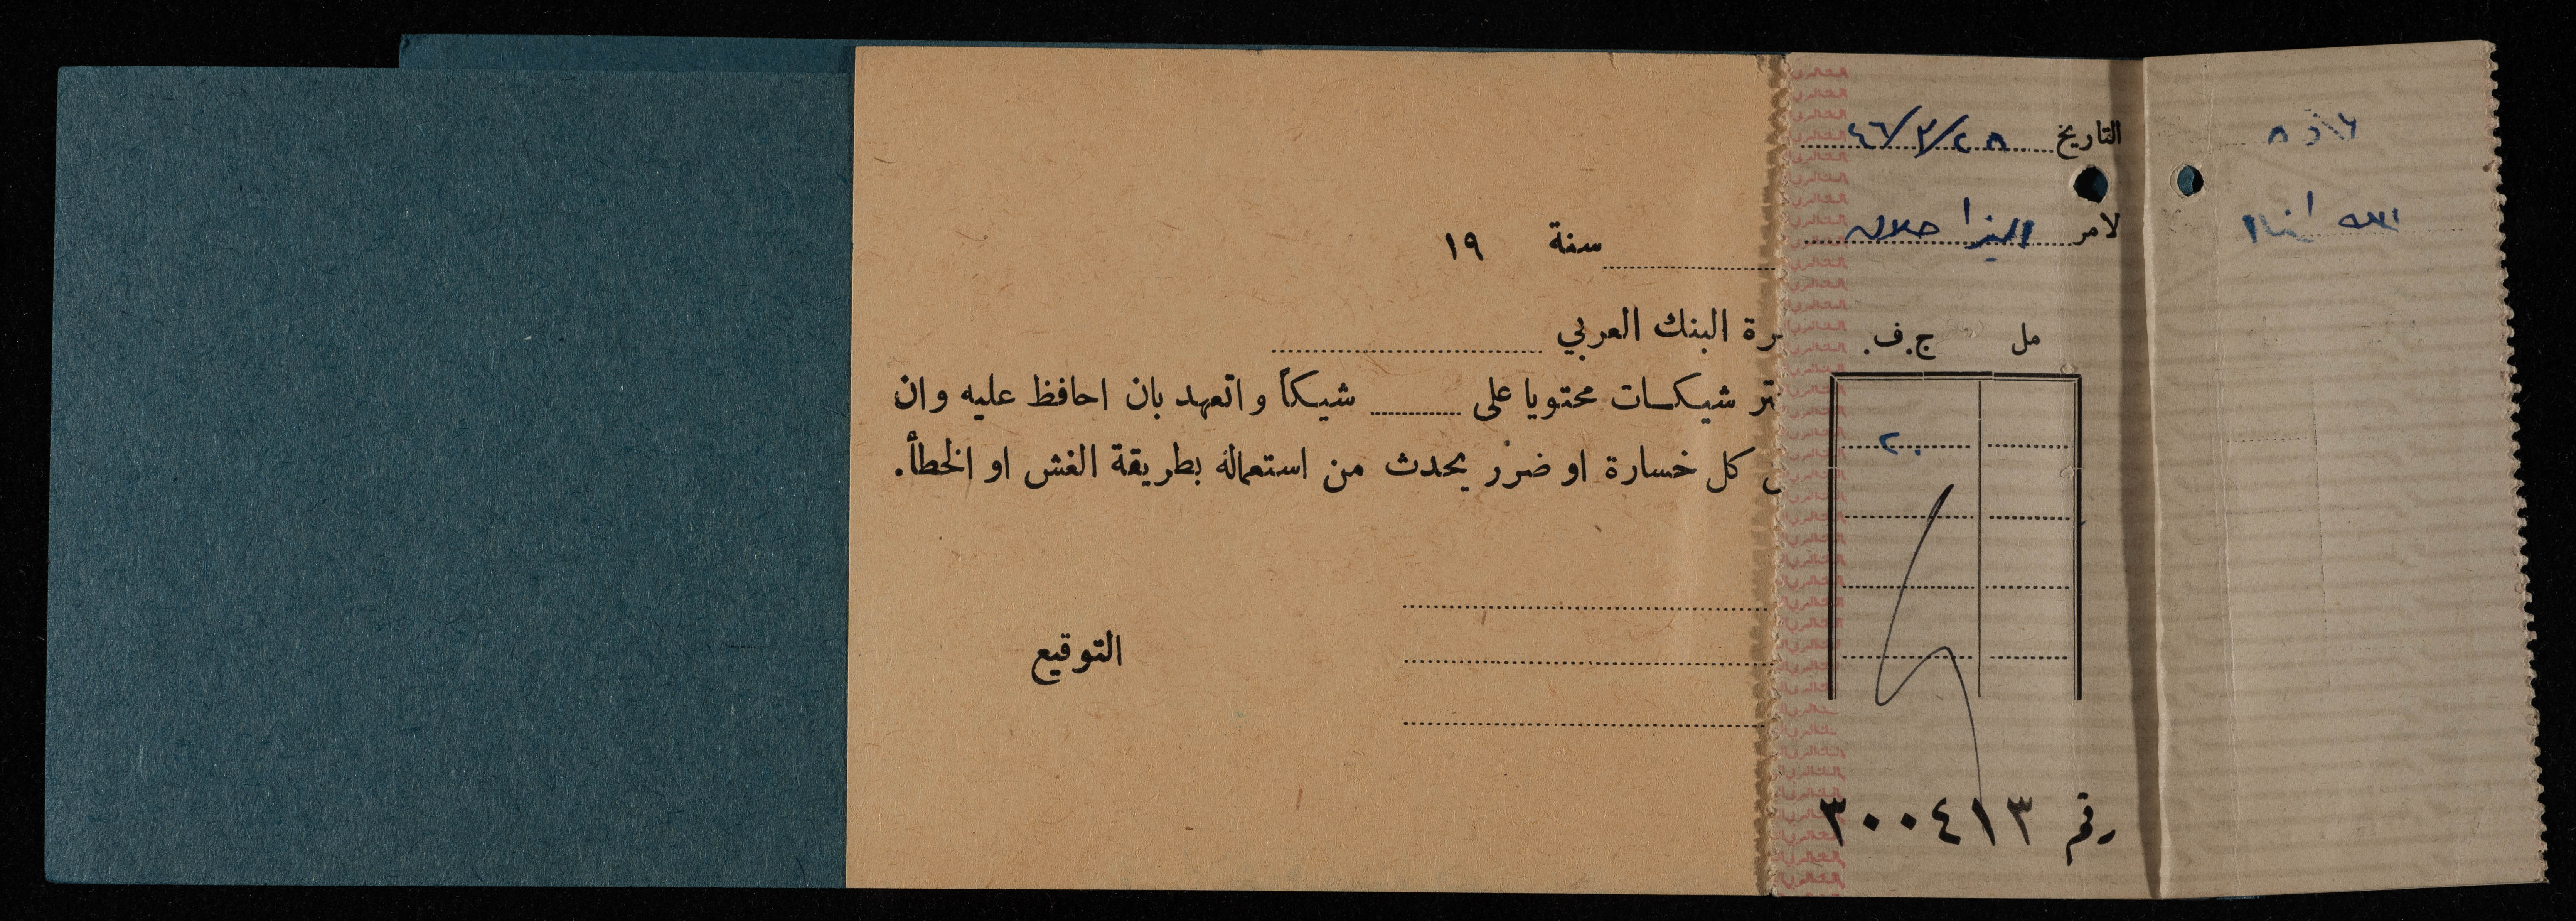 التاريخ ٢٨/٣/٤٦
لامر اليزا
مل ج.ف.
٢٠
رقم ٣٠٠٤١٣
سنة ١٩
رة البنك العربي
تر شيكات محتويا على شيكاً واتعهد بان احافظ عليه وان
كل خسارة او ضرر يحدث من استعماله بطريقة الغش او الخطأ.
التوقيع